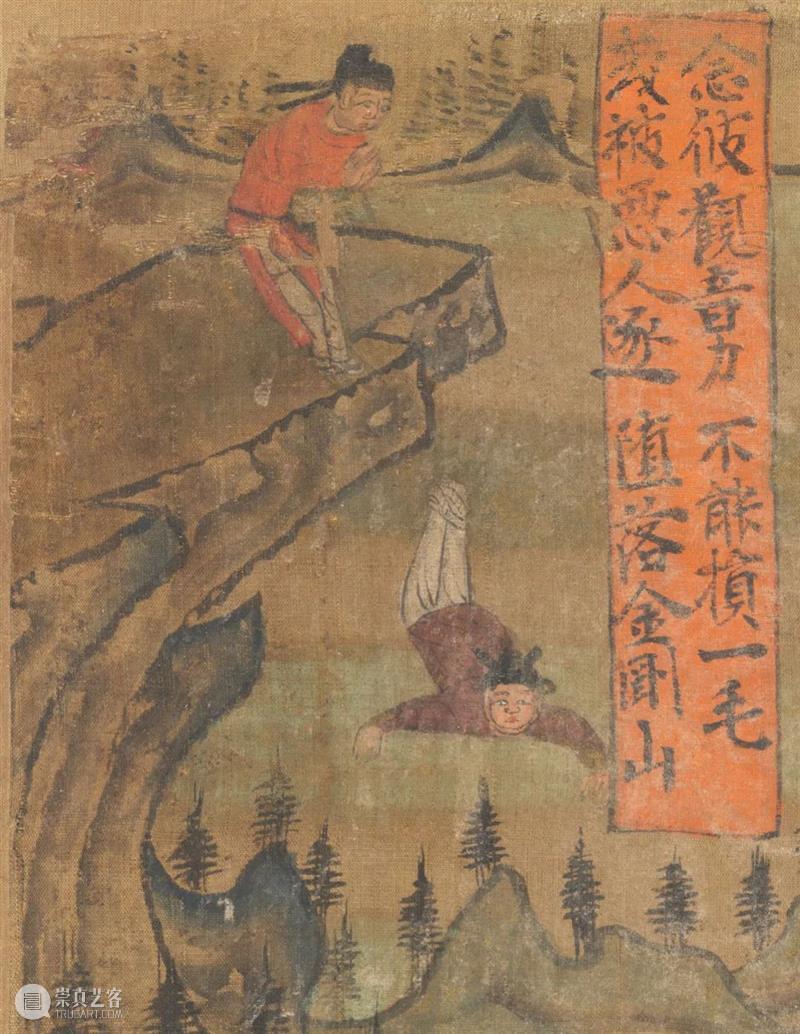 或被惡人逐 墮落金剛山
念彼觀音力 不能損一毛
崇真艺客
TRUEART.COM